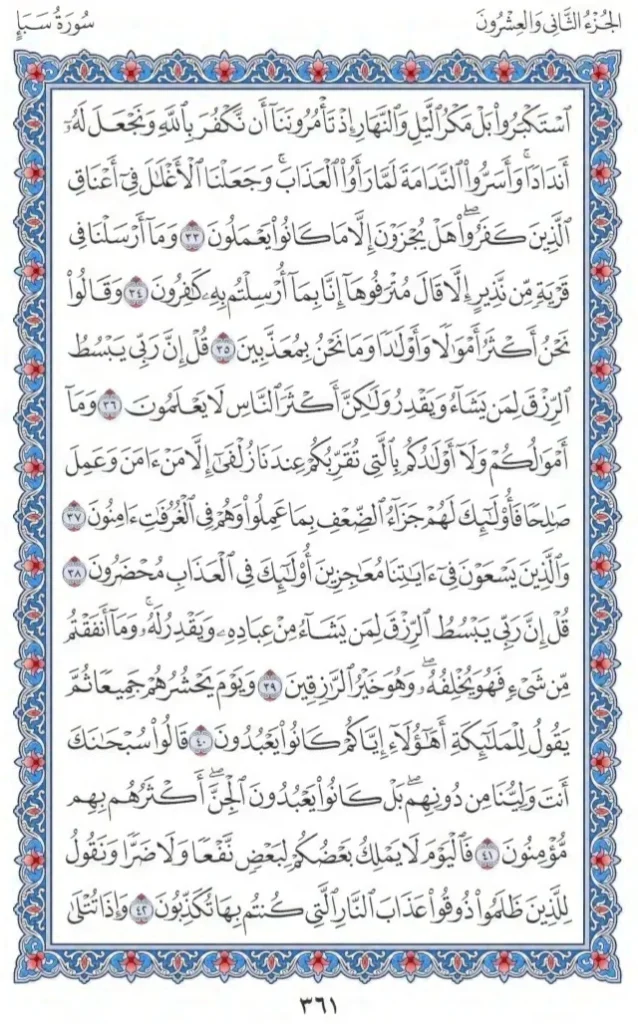 الجُزْءُ الثَّانِي وَالعِشْرُونَ سُورَةُ سَبَإٍ
ٱسۡتَكۡبَرُواْ بَلۡ مَكۡرُ ٱلَّيۡلِ وَٱلنَّهَارِ إِذۡ تَأۡمُرُونَنَآ أَن نَّكۡفُرَ بِٱللَّهِ وَنَجۡعَلَ لَهُۥٓ
أَندَادٗاۚ وَأَسَرُّواْ ٱلنَّدَامَةَ لَمَّا رَأَوُاْ ٱلۡعَذَابَۚ وَجَعَلۡنَا ٱلۡأَغۡلَٰلَ فِيٓ أَعۡنَاقِ
ٱلَّذِينَ كَفَرُواْۖ هَلۡ يُجۡزَوۡنَ إِلَّا مَا كَانُواْ يَعۡمَلُونَ ٣٣ وَمَآ أَرۡسَلۡنَا فِي
قَرۡيَةٖ مِّن نَّذِيرٍ إِلَّا قَالَ مُتۡرَفُوهَآ إِنَّا بِمَآ أُرۡسِلۡتُم بِهِۦ كَٰفِرُونَ ٣٤ وَقَالُواْ
نَحۡنُ أَكۡثَرُ أَمۡوَٰلٗا وَأَوۡلَٰدٗا وَمَا نَحۡنُ بِمُعَذَّبِينَ ٣٥ قُلۡ إِنَّ رَبِّي يَبۡسُطُ
ٱلرِّزۡقَ لِمَن يَشَآءُ وَيَقۡدِرُ وَلَٰكِنَّ أَكۡثَرَ ٱلنَّاسِ لَا يَعۡلَمُونَ ٣٦ وَمَآ
أَمۡوَٰلُكُمۡ وَلَآ أَوۡلَٰدُكُم بِٱلَّتِي تُقَرِّبُكُمۡ عِندَنَا زُلۡفَىٰٓ إِلَّا مَنۡ ءَامَنَ وَعَمِلَ
صَٰلِحٗا فَأُوْلَٰٓئِكَ لَهُمۡ جَزَآءُ ٱلضِّعۡفِ بِمَا عَمِلُواْ وَهُمۡ فِي ٱلۡغُرُفَٰتِ ءَامِنُونَ ٣٧
وَٱلَّذِينَ يَسۡعَوۡنَ فِيٓ ءَايَٰتِنَا مُعَٰجِزِينَ أُوْلَٰٓئِكَ فِي ٱلۡعَذَابِ مُحۡضَرُونَ ٣٨
قُلۡ إِنَّ رَبِّي يَبۡسُطُ ٱلرِّزۡقَ لِمَن يَشَآءُ مِنۡ عِبَادِهِۦ وَيَقۡدِرُ لَهُۥۚ وَمَآ أَنفَقۡتُم
مِّن شَيۡءٖ فَهُوَ يُخۡلِفُهُۥۖ وَهُوَ خَيۡرُ ٱلرَّٰزِقِينَ ٣٩ وَيَوۡمَ يَحۡشُرُهُمۡ جَمِيعٗا ثُمَّ
يَقُولُ لِلۡمَلَٰٓئِكَةِ أَهَٰٓؤُلَآءِ إِيَّاكُمۡ كَانُواْ يَعۡبُدُونَ ٤٠ قَالُواْ سُبۡحَٰنَكَ
أَنتَ وَلِيُّنَا مِن دُونِهِمۖ بَلۡ كَانُواْ يَعۡبُدُونَ ٱلۡجِنَّۖ أَكۡثَرُهُم بِهِم
مُّؤۡمِنُونَ ٤١ فَٱلۡيَوۡمَ لَا يَمۡلِكُ بَعۡضُكُمۡ لِبَعۡضٖ نَّفۡعٗا وَلَا ضَرّٗا وَنَقُولُ
لِلَّذِينَ ظَلَمُواْ ذُوقُواْ عَذَابَ ٱلنَّارِ ٱلَّتِي كُنتُم بِهَا تُكَذِّبُونَ ٤٢ وَإِذَا تُتۡلَىٰ
٣٦١